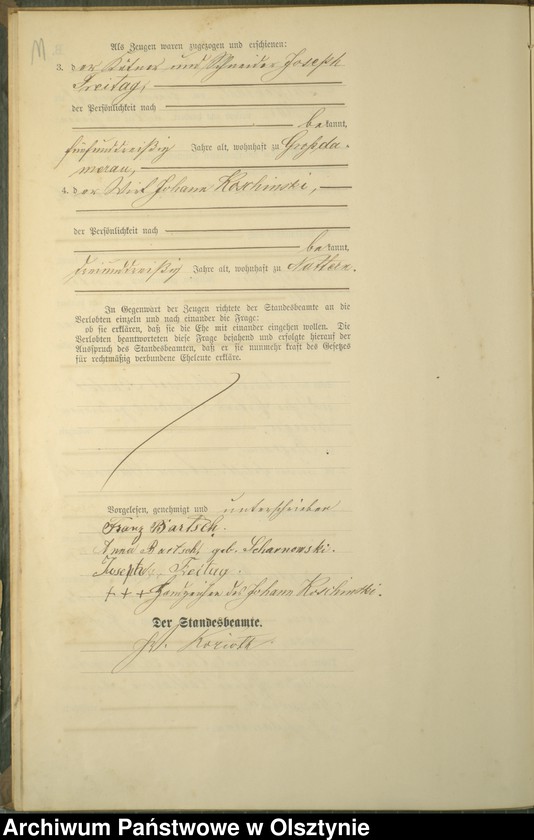 M
Als Zeugen waren zugezogen und erschienen:
3. der Kätner und Schneider Joseph
Freitag,
der Persönlichkeit nach
bekannt,
fünfunddreißig Jahre alt, wohnhaft zu Großda-
merau,
4. der Wirt Johann Koschinski,
der Persönlichkeit nach
bekannt,
dreiunddreißig Jahre alt, wohnhaft zu Nattern.
In Gegenwart der Zeugen richtete der Standesbeamte an die
Verlobten einzeln und nach einander die Frage:
ob sie erklären, daß sie die Ehe mit einander eingehen wollen. Die
Verlobten beantworteten diese Frage bejahend und erfolgte hierauf der
Ausspruch des Standesbeamten, daß er sie nunmehr kraft des Gesetzes
für rechtmäßig verbundene Eheleute erkläre.
Vorgelesen, genehmigt und unterschrieben
Franz Bartsch.
Anna Bartsch, geb. Scharnowski.
Joseph Freitag.
+++ Handzeichen des Johann Koschinski.
Der Standesbeamte.
Korioth
Archiwum Państwowe w Olsztynie